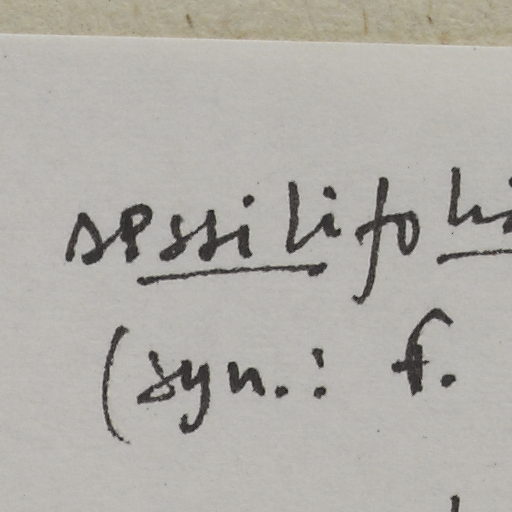 sessilifoli
(syn.: f.